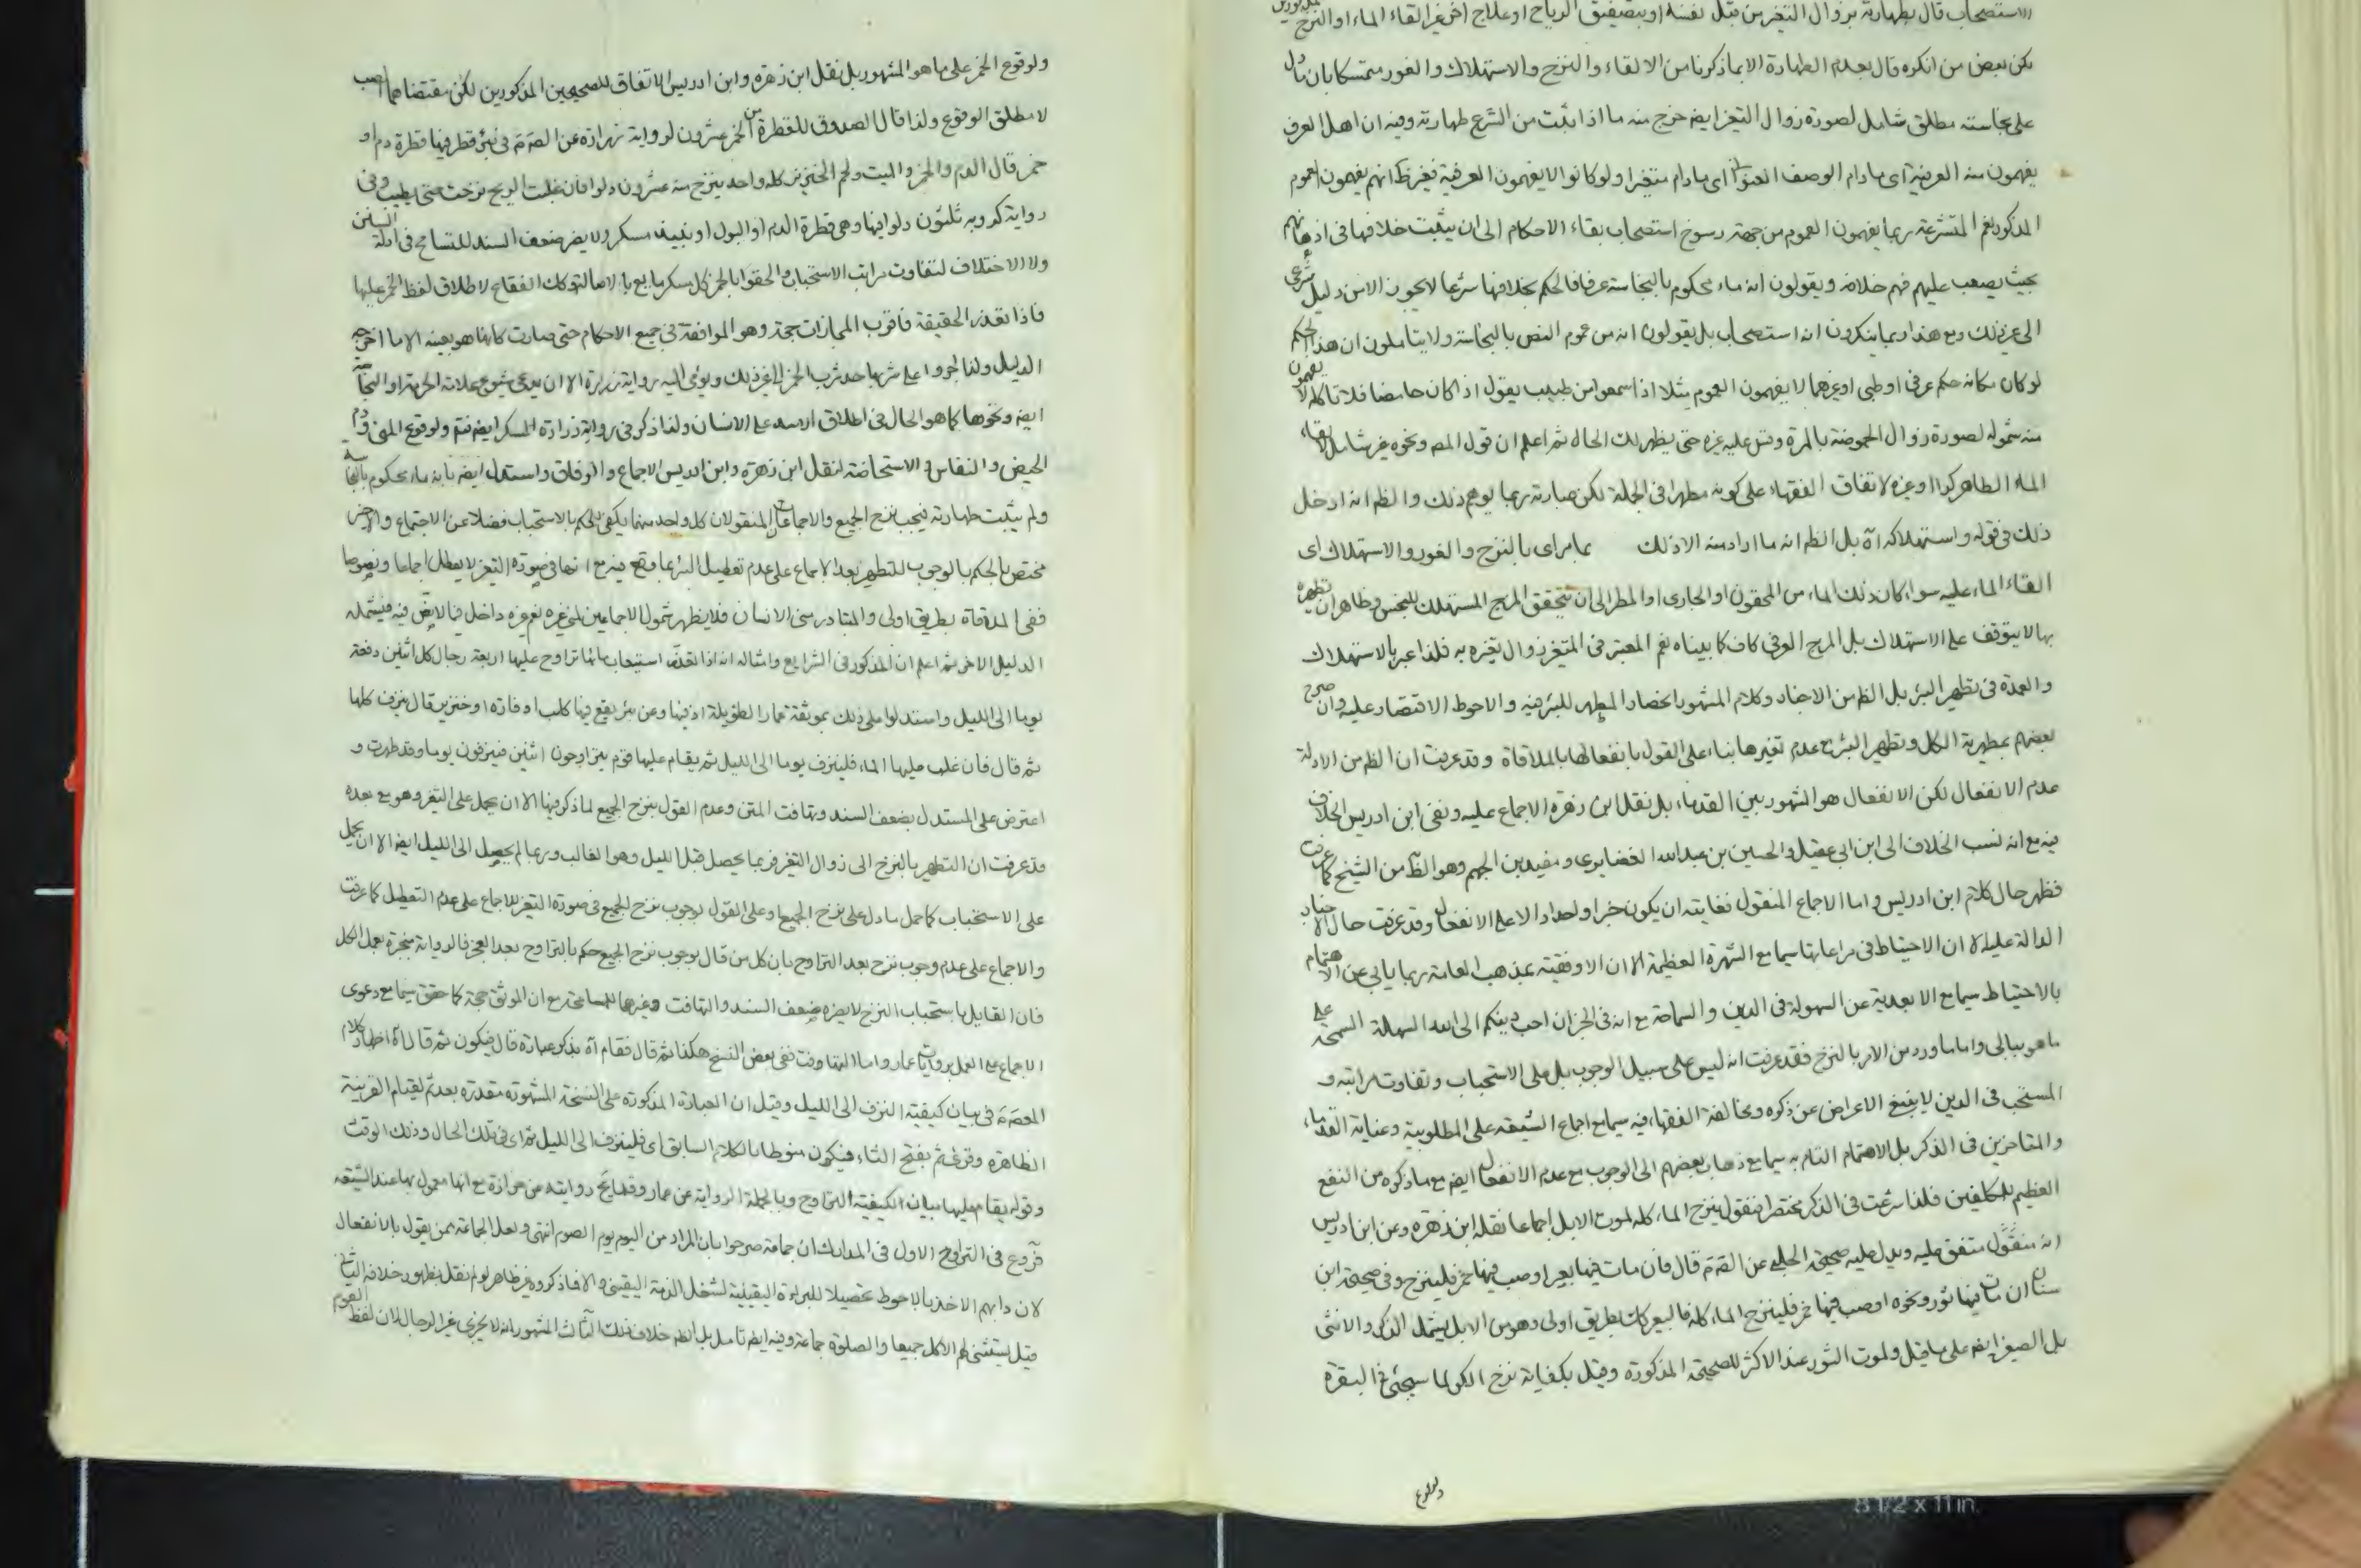 الاستصحاب قال بطهارته بزوال التغير من قبل نفسه او بتصفيق الرياح او علاج اخر غير القاء الماء او النزح
لكن بعض من انكره قال بعدم الطهارة الا بما ذكرنا من الالقاء والنزح والاستهلاك والغور متمسكا بان ما دل
على نجاسته مطلق شامل لصورة زوال التغير ايضا خرج منه ما اذا ثبت من الشرع طهارته وفيه ان اهل العرف
يفهمون منه العرفية اى مادام الوصف العنوانى اى مادام متغيرا ولو كانوا لا يفهمون العرفية فغير ظ انهم يفهمون العموم
المذكور نعم المتشرعة ربما يفهمون العموم من جهة رسوخ استصحاب بقاء الاحكام الى ان يثبت خلافها فى اذهانهم
بحيث يصعب عليهم فهم خلافه ويقولون انه ماء محكوم بالنجاسة عرفا فالحكم بخلافها شرعا لا يجوز الا من دليل شرعى
الى غير ذلك ومع هذا ربما ينكرون انه استصحاب بل يقولون انه من عموم النص بالنجاسة ولا يتاملون ان هذا الحكم
لو كان مكانه حكم عرفى او طبى او غيرهما لا يفهمون العموم مثلا اذا سمعوا من طبيب يقول اذا كان حامضا فلا تاكله لا يفهمون
منه شموله لصورة زوال الحموضة بالمرة وقس عليه غيره حتى يظهر لك الحال ثم اعلم ان قول المص ونحوه غير شامل لالقاء
الماء الطاهر كرا او غيره لاتفاق الفقهاء على كونه مطهرا فى الجملة لكن عبارته ربما يوهم ذلك والظ انه ادخل
ذلك فى قوله واستهلاكه اه بل الظ انه ما اراد منه الا ذلك بما مر اى بالنزح والغور والاستهلاك اى
القاء الماء عليه سواء كان ذلك الماء من المحقون او الجارى او المطر الى ان يتحقق المزج المستهلك للنجس وظاهر ان تطهيره
بها لا يتوقف على الاستهلاك بل المزج العرفى كاف كما بيناه نعم المعتبر فى المتغير زوال تغيره به فلذا عبر بالاستهلاك
والعمدة فى تطهير البئر بل الظ من الاخبار وكلام المشهور انحصار المطهر للبئر فيه والاحوط الاقتصار عليه وان صرح
بعضهم بمطهرية الكل وتطهير البئر مع عدم تغيرها بناء على القول بانفعالها بالملاقاة وقد عرفت ان الظ من الادلة
عدم الانفعال لكن الانفعال هو المشهور بين القدماء بل نقل ابن زهرة الاجماع عليه ونفى ابن ادريس الخلاف
فيه مع انه نسب الخلاف الى ابن ابى عقيل والحسين بن عبد الله الغضايرى ومفيد بن الجهم وهو الظ من الشيخ كما عرفت
فظهر حال كلام ابن ادريس واما الاجماع المنقول فغايته ان يكون خبرا واحدا دالا على الانفعال وقد عرفت حال الاخبار
الدالة عليه الا ان الاحتياط فى مراعاتها سيما مع الشهرة العظيمة الا ان الاوفقية بمذهب العامة ربما يابى عن الاهتمام
بالاحتياط سيما مع الابعدية عن السهولة فى الدين والسماحة مع انه فى الخبر ان احب دينكم الى الله السهلة السمحة على
ما هو ببالى واما ما ورد من الامر بالنزح فقد عرفت انه ليس على سبيل الوجوب بل على الاستحباب وتفاوت مراتبه و
المستحب فى الدين لا ينبغى الاعراض عن ذكره ومخالفة الفقهاء فيه سيما مع اجماع الشيعة على المطلوبية وعناية القدماء
والمتاخرين فى الذكر بل الاهتمام التام به سيما مع ذهاب بعضهم الى الوجوب مع عدم الانفعال ايضا مع ما ذكره من النفع
العظيم للمكلفين فلذا شرعت فى الذكر مختصرا فنقول ينزح الماء كله لموت الابل اجماعا نقله ابن زهرة وعن ابن ادريس
انه منقول متفق عليه ويدل عليه صحيحة الحلبى عن الصادق ع قال فان مات فيها بعير او صب فيها خمر فلينزح وفى صحيحة ابن
سنان ان مات فيها ثور ونحوه او صب فيها خمر فلينزح الماء كله فالبعير كك بطريق اولى وهو من الابل يشمل الذكر والانثى
بل الصغير ايضا على ما قيل ولموت الثور عند الاكثر للصحيحة المذكورة وقيل بكفاية نزح الكر لما سيجئ فى البقرة
ولوقوع
ولوقوع الخمر على ما هو المشهور بل نقل ابن زهرة وابن ادريس الاتفاق للصحيحين المذكورين لكن مقتضاهما الصب
لا مطلق الوقوع ولذا قال الصدوق للقطرة من الخمر عشرون لرواية زرارة عن الصادق ع فى بئر قطر فيها قطرة دم او
خمر قال الدم والخمر والميت ولحم الخنزير كله واحد ينزح منه عشرون دلوا فان غلبت الريح نزحت حتى يطيب وفى
رواية كردويه ثلثون دلوا فيها وهى قطرة الدم او البول او نبيذ مسكر ولا يضر ضعف السند للتسامح فى ادلة السنن
ولا الاختلاف لتفاوت مراتب الاستحباب والحقوا بالخمر كل مسكر مايع بالاصالة وكك الفقاع لاطلاق لفظ الخمر عليها
فاذا تعذر الحقيقة فاقرب المجازات حجة وهو الموافقة فى جميع الاحكام حتى صارت كانها هو بعينه الا ما اخرجه
الدليل ولذا اجروا على شربها حد شرب الخمر الى غير ذلك ويومى اليه رواية زرارة الا ان يدعى شيوع علاقة الحرمة او النجاسة
ايضا ونحوها كما هو الحال فى اطلاق الاسد على الانسان ولذا ذكر فى رواية زرارة المسكر ايضا فتم ولوقوع المنى ودم
الحيض والنفاس والاستحاضة لنقل ابن زهرة وابن ادريس الاجماع والوفاق واستدل ايضا بانه ماء محكوم بالنجاسة
ولم يثبت طهارته فيجب نزح الجميع والاجماعان المنقولان كل واحد منهما يكفى للحكم بالاستحباب فضلا عن الاجتماع والاخير
مختص بالحكم بالوجوب للتطهير بعد الاجماع على عدم تعطيل البئر بما وقع فيه مع انها فى صورة التغير لا يعطل اجماعا ونصوصا
ففى الملاقاة بطريق اولى والمتبادر منى الانسان فلا يظهر شمول الاجماعين لمنى غيره نعم غيره داخل فيما لا نص فيه فيشمله
الدليل الاخر ثم اعلم ان المذكور فى الشرايع وامثاله انه اذا تعذر استيعاب مائها تراوح عليها اربعة رجال كل اثنين دفعة
يوما الى الليل واستدلوا على ذلك بموثقة عمار الطويلة اذ فيها وعن بئر يقع فيها كلب او فارة او خنزير قال ينزف كلها
ثم قال فان غلب عليها الماء فلينزف يوما الى الليل ثم يقام عليها قوم يتراوحون اثنين فينزفون يوما وقد طهرت و
اعترض على المستدل بضعف السند وتهافت المتن وعدم القول بنزح الجميع لما ذكر فيها الا ان يحمل على التغير وهو مع بعده
قد عرفت ان التطهير بالنزح الى زوال التغير فربما يحصل قبل الليل وهو الغالب وربما لم يحصل الى الليل ايضا الا ان يحمل
على الاستحباب كما حمل ما دل على نزح الجميع وعلى القول بوجوب نزح الجميع فى صورة التغير للاجماع على عدم التعطيل كما عرفت
والاجماع على عدم وجوب نزح بعد التراوح بان كل من قال بوجوب نزح الجميع حكم بالتراوح بعد العجز فالرواية منجبرة بعمل الكل
فان القايل باستحباب النزح لا يضره ضعف السند والتهافت وغيرها للمسامحة مع ان الموثق حجة كما حقق سيما مع دعوى
الاجماع على العمل بروايات عمار واما التهافت ففى بعض النسخ هكذا ثم قال فقام اه بذكر عبارة قال فيكون ثم قال اه اظهار كلام
المعصوم ع فى بيان كيفية النزف الى الليل وقيل ان العبارة المذكورة على النسخة المشهورة مقدرة بعد ثم لقيام القرينة
الظاهرة وقرئ ثم بفتح الثاء فيكون منوطا بالكلام السابق اى فلينزف الى الليل ثم اى فى تلك الحال وذلك الوقت
وقوله يقام عليها بيان لكيفية التراوح وبالجملة الرواية عن عمار وقلما يخ روايته عن حزازة مع انها معمول بها عند الشيعة
فروع فى التراوح الاول فى المدارك ان جماعة صرحوا بان المراد من اليوم يوم الصوم انتهى ولعل الجماعة ممن يقول بالانفعال
لان دابهم الاخذ بالاحوط تحصيلا للبراءة اليقينية لشغل الذمة اليقينى والا فما ذكروه غير ظاهر لو لم نقل بظهور خلافه الثانى
قيل يستثنى لهم الاكل جميعا والصلوة جماعة وفيه ايضا تامل بل الظ خلاف ذلك الثالث المشهور انه لا يجزى غير الرجال لان لفظ القوم